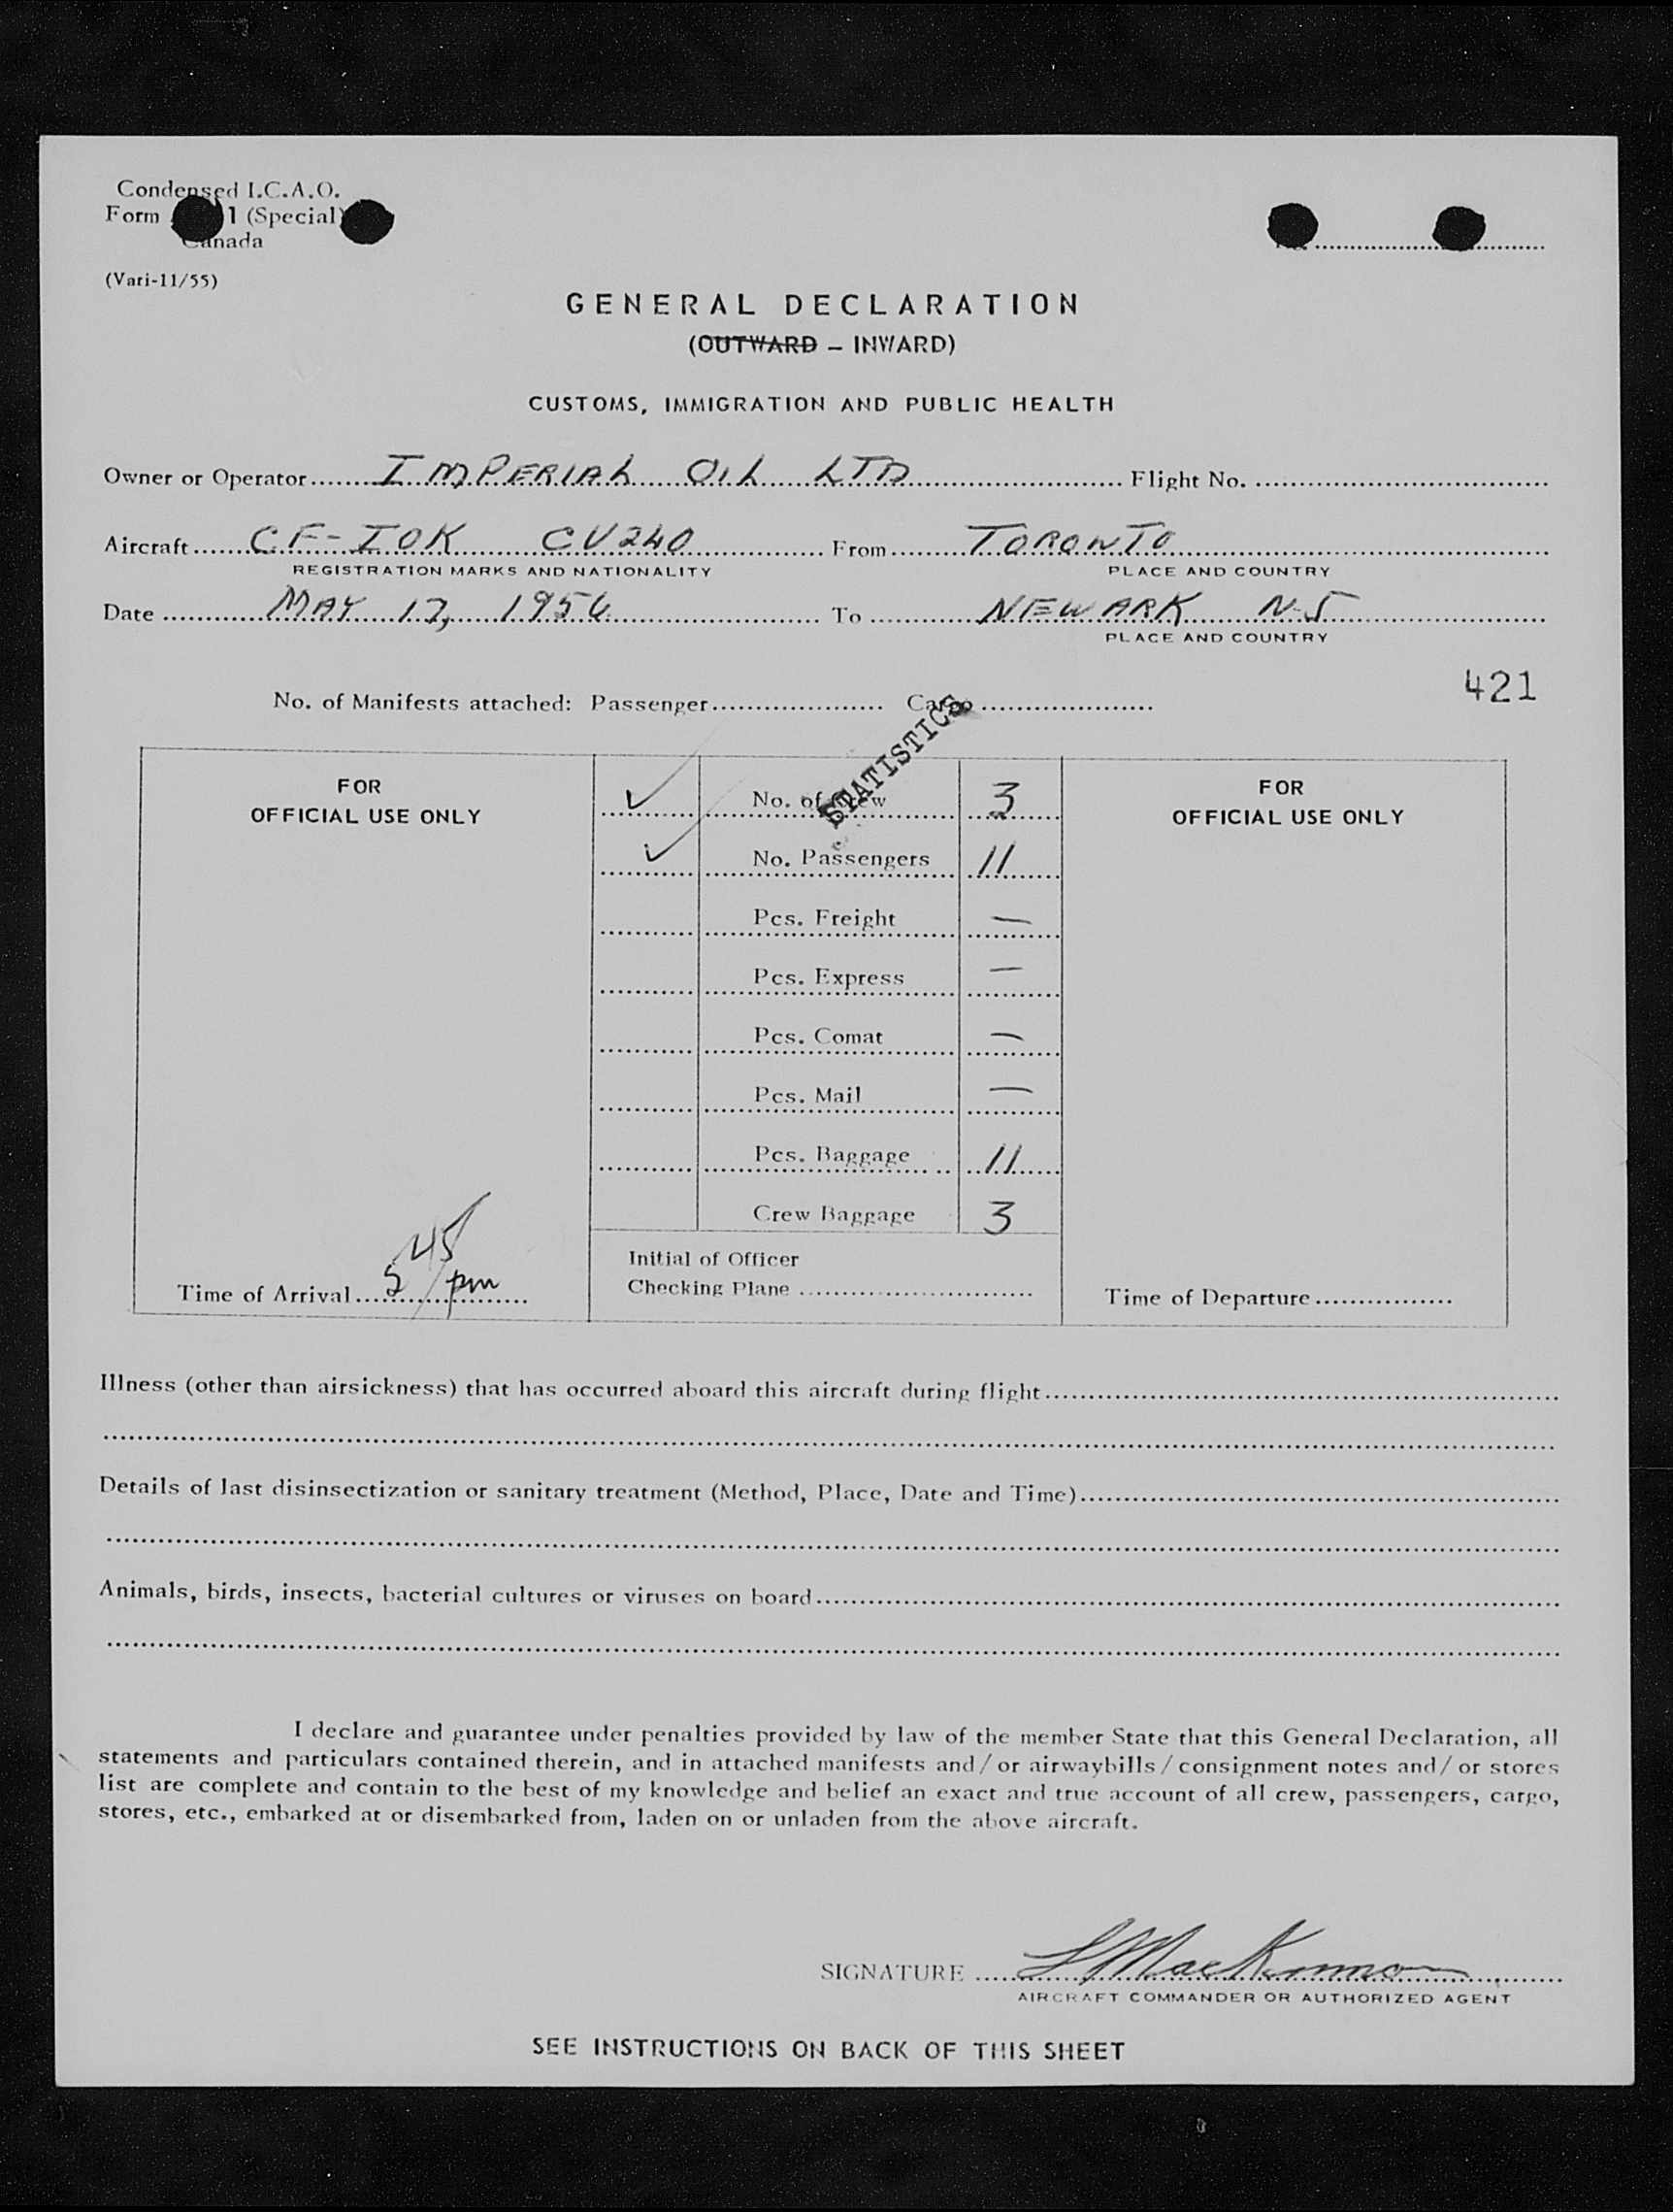 Condensed I.C.A.O.
Form 1 (Special)
Canada
(Vari-11/55)
GENERAL DECLARATION
(OUTWARD – INWARD)
CUSTOMS, IMMIGRATION AND PUBLIC HEALTH
Owner or Operator IMPERIAL OIL LTD Flight No.
Aircraft CF-IOK CV240 From TORONTO
REGISTRATION MARKS AND NATIONALITY PLACE AND COUNTRY
Date MAY 17, 1956 To NEWARK N-J
PLACE AND COUNTRY
421
No. of Manifests attached: Passenger Cargo
STATISTICS
FOR
OFFICIAL USE ONLY
No. of Crew 3
No. Passengers 11
Pcs. Freight —
Pcs. Express —
Pcs. Comat —
Pcs. Mail —
Pcs. Baggage 11
Crew Baggage 3
FOR
OFFICIAL USE ONLY
Time of Arrival 5 45 pm
Initial of Officer
Checking Plane
Time of Departure
Illness (other than airsickness) that has occurred aboard this aircraft during flight
Details of last disinsectization or sanitary treatment (Method, Place, Date and Time)
Animals, birds, insects, bacterial cultures or viruses on board
I declare and guarantee under penalties provided by law of the member State that this General Declaration, all
statements and particulars contained therein, and in attached manifests and/or airwaybills/consignment notes and/or stores
list are complete and contain to the best of my knowledge and belief an exact and true account of all crew, passengers, cargo,
stores, etc., embarked at or disembarked from, laden on or unladen from the above aircraft.
SIGNATURE L MacKinnon
AIRCRAFT COMMANDER OR AUTHORIZED AGENT
SEE INSTRUCTIONS ON BACK OF THIS SHEET